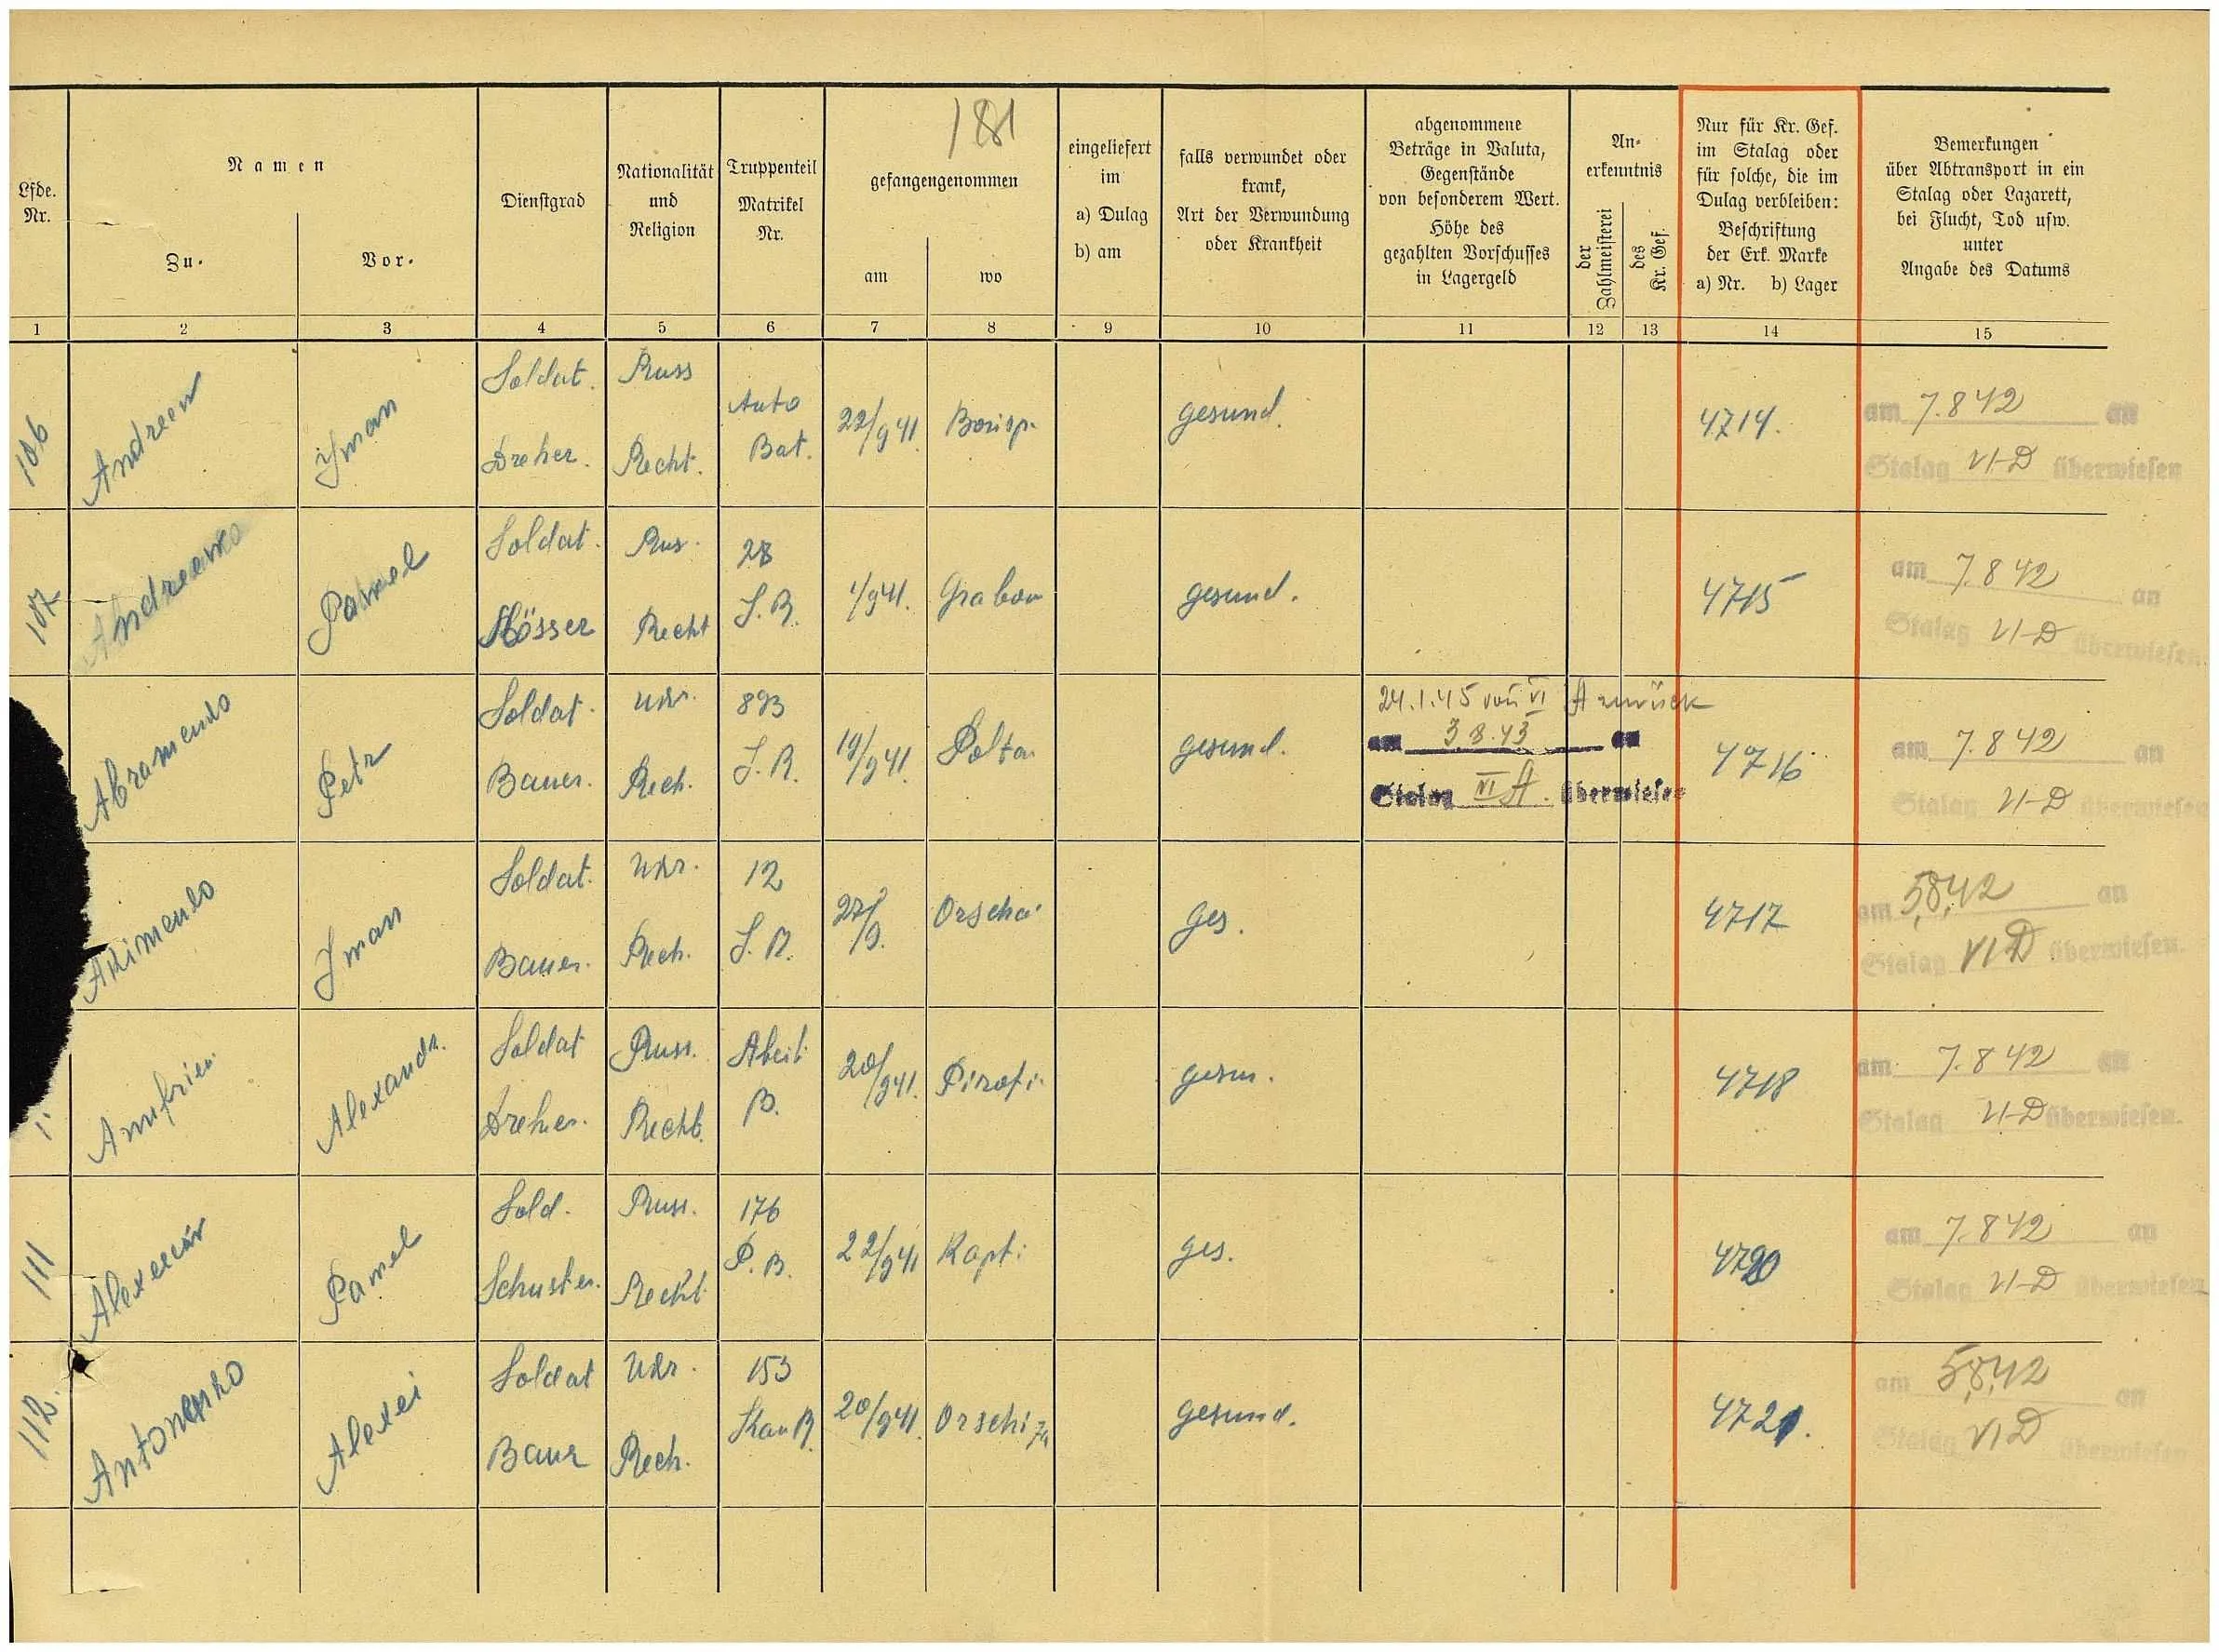 181
Lfde. Nr.
Namen
Zu-
Vor-
Dienstgrad
Nationalität und Religion
Truppenteil Matrikel Nr.
gefangengenommen
am
wo
eingeliefert im a) Dulag b) am
falls verwundet oder krank, Art der Verwundung oder Krankheit
abgenommene Beträge in Valuta, Gegenstände von besonderem Wert. Höhe des gezahlten Vorschusses in Lagergeld
An-erkenntnis
der Zahlmeisterei
des Kr. Gef.
Nur für Kr. Gef. im Stalag oder für solche, die im Dulag verbleiben: Beschriftung der Erk. Marke a) Nr. b) Lager
Bemerkungen über Abtransport in ein Stalag oder Lazarett, bei Flucht, Tod usw. unter Angabe des Datums
1 2 3 4 5 6 7 8 9 10 11 12 13 14 15
106 Andreew Iwan Soldat. Dreher. Russ Recht. Auto Bat. 22/9 41 Borisp. gesund. 4714. am 7.8 42 an Stalag VI-D überwiesen
107 Pawel Soldat. Rus. Recht 28 J.R. 1/9 41. Grabow gesund. 4715 am 7.8 42 an Stalag VI-D überwiesen.
Abramenko Petr Soldat. Bauer. Ukr. Rech. 893 J.R. 19/9 41. Polta. gesund. 24.1.45 von VI A zurück am 3.8.43 an Stalag VI A. überwiesen 4716 am 7.8 42 an Stalag VI-D überwiesen
Akimenko Iwan Soldat. Bauer. Ukr. Rech. 12 J.R. Orscha. ges. 4717 am 5.8.42 an Stalag VI D überwiesen.
Alexandr. Soldat Dreher. Russ. Recht. B. 20/9 41. Pirati. gesun. 4718 am 7.8 42 an Stalag VI-D überwiesen.
111 Pawel Sold. Schuster. Russ. Recht. 176 P.B. 22/9 41 Kapt. ges. 4720 am 7.8 42 an Stalag VI-D überwiesen
112. Antonenko Alexei Soldat Baur Ukr. Rech. 153 20/9 41. gesund. 4721. am 5.8.42 an Stalag VI D überwiesen